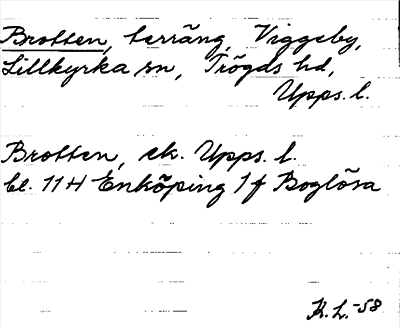 Brotten, terräng, Viggeby,
Lillkyrka sn, Trögds hd,
Upps. l.
Brotten, ek. Upps. l.
bl. 11H Enköping 1f Boglösa
K.L. -58